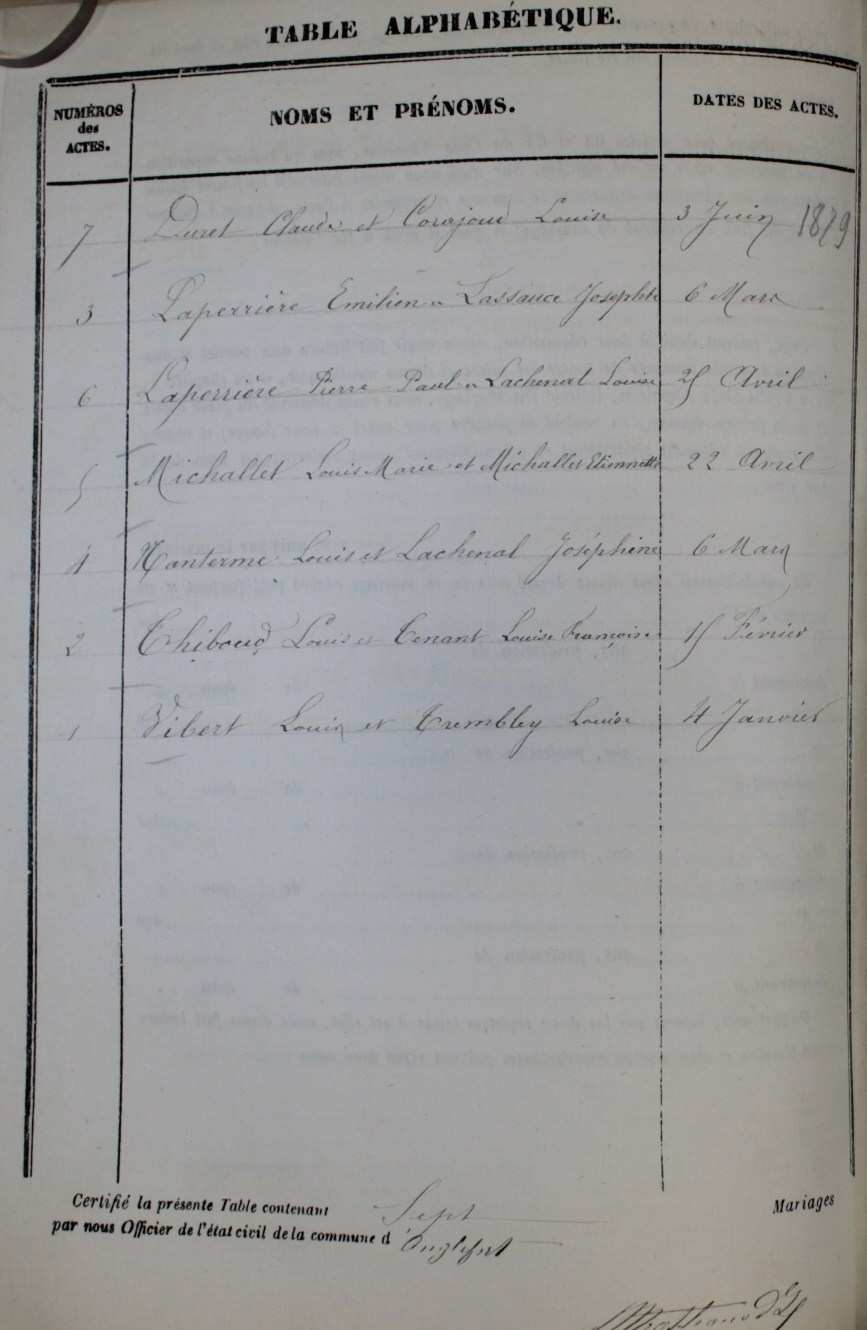 TABLE ALPHABÉTIQUE.
NUMÉROS des ACTES.
NOMS ET PRÉNOMS.
DATES DES ACTES.
7 Duret Claude et Corajoud Louise 3 Juin 1879
3 Laperrière Emilien & Lassauce Josephte 6 Mars
6 Laperrière Pierre Paul & Lachenal Louise 25 Avril
5 Michallet Louis Marie et Michallet Etiennette 22 Avril
4 Nanterme Louis et Lachenal Joséphine 6 Mars
2 Thiboud Louis et Tenant Louise Françoise 15 Février
1 Vibert Louis et Trembley Louise 4 Janvier
Certifié la présente Table contenant Sept Mariages
par nous Officier de l'état civil de la commune d'Anglefort